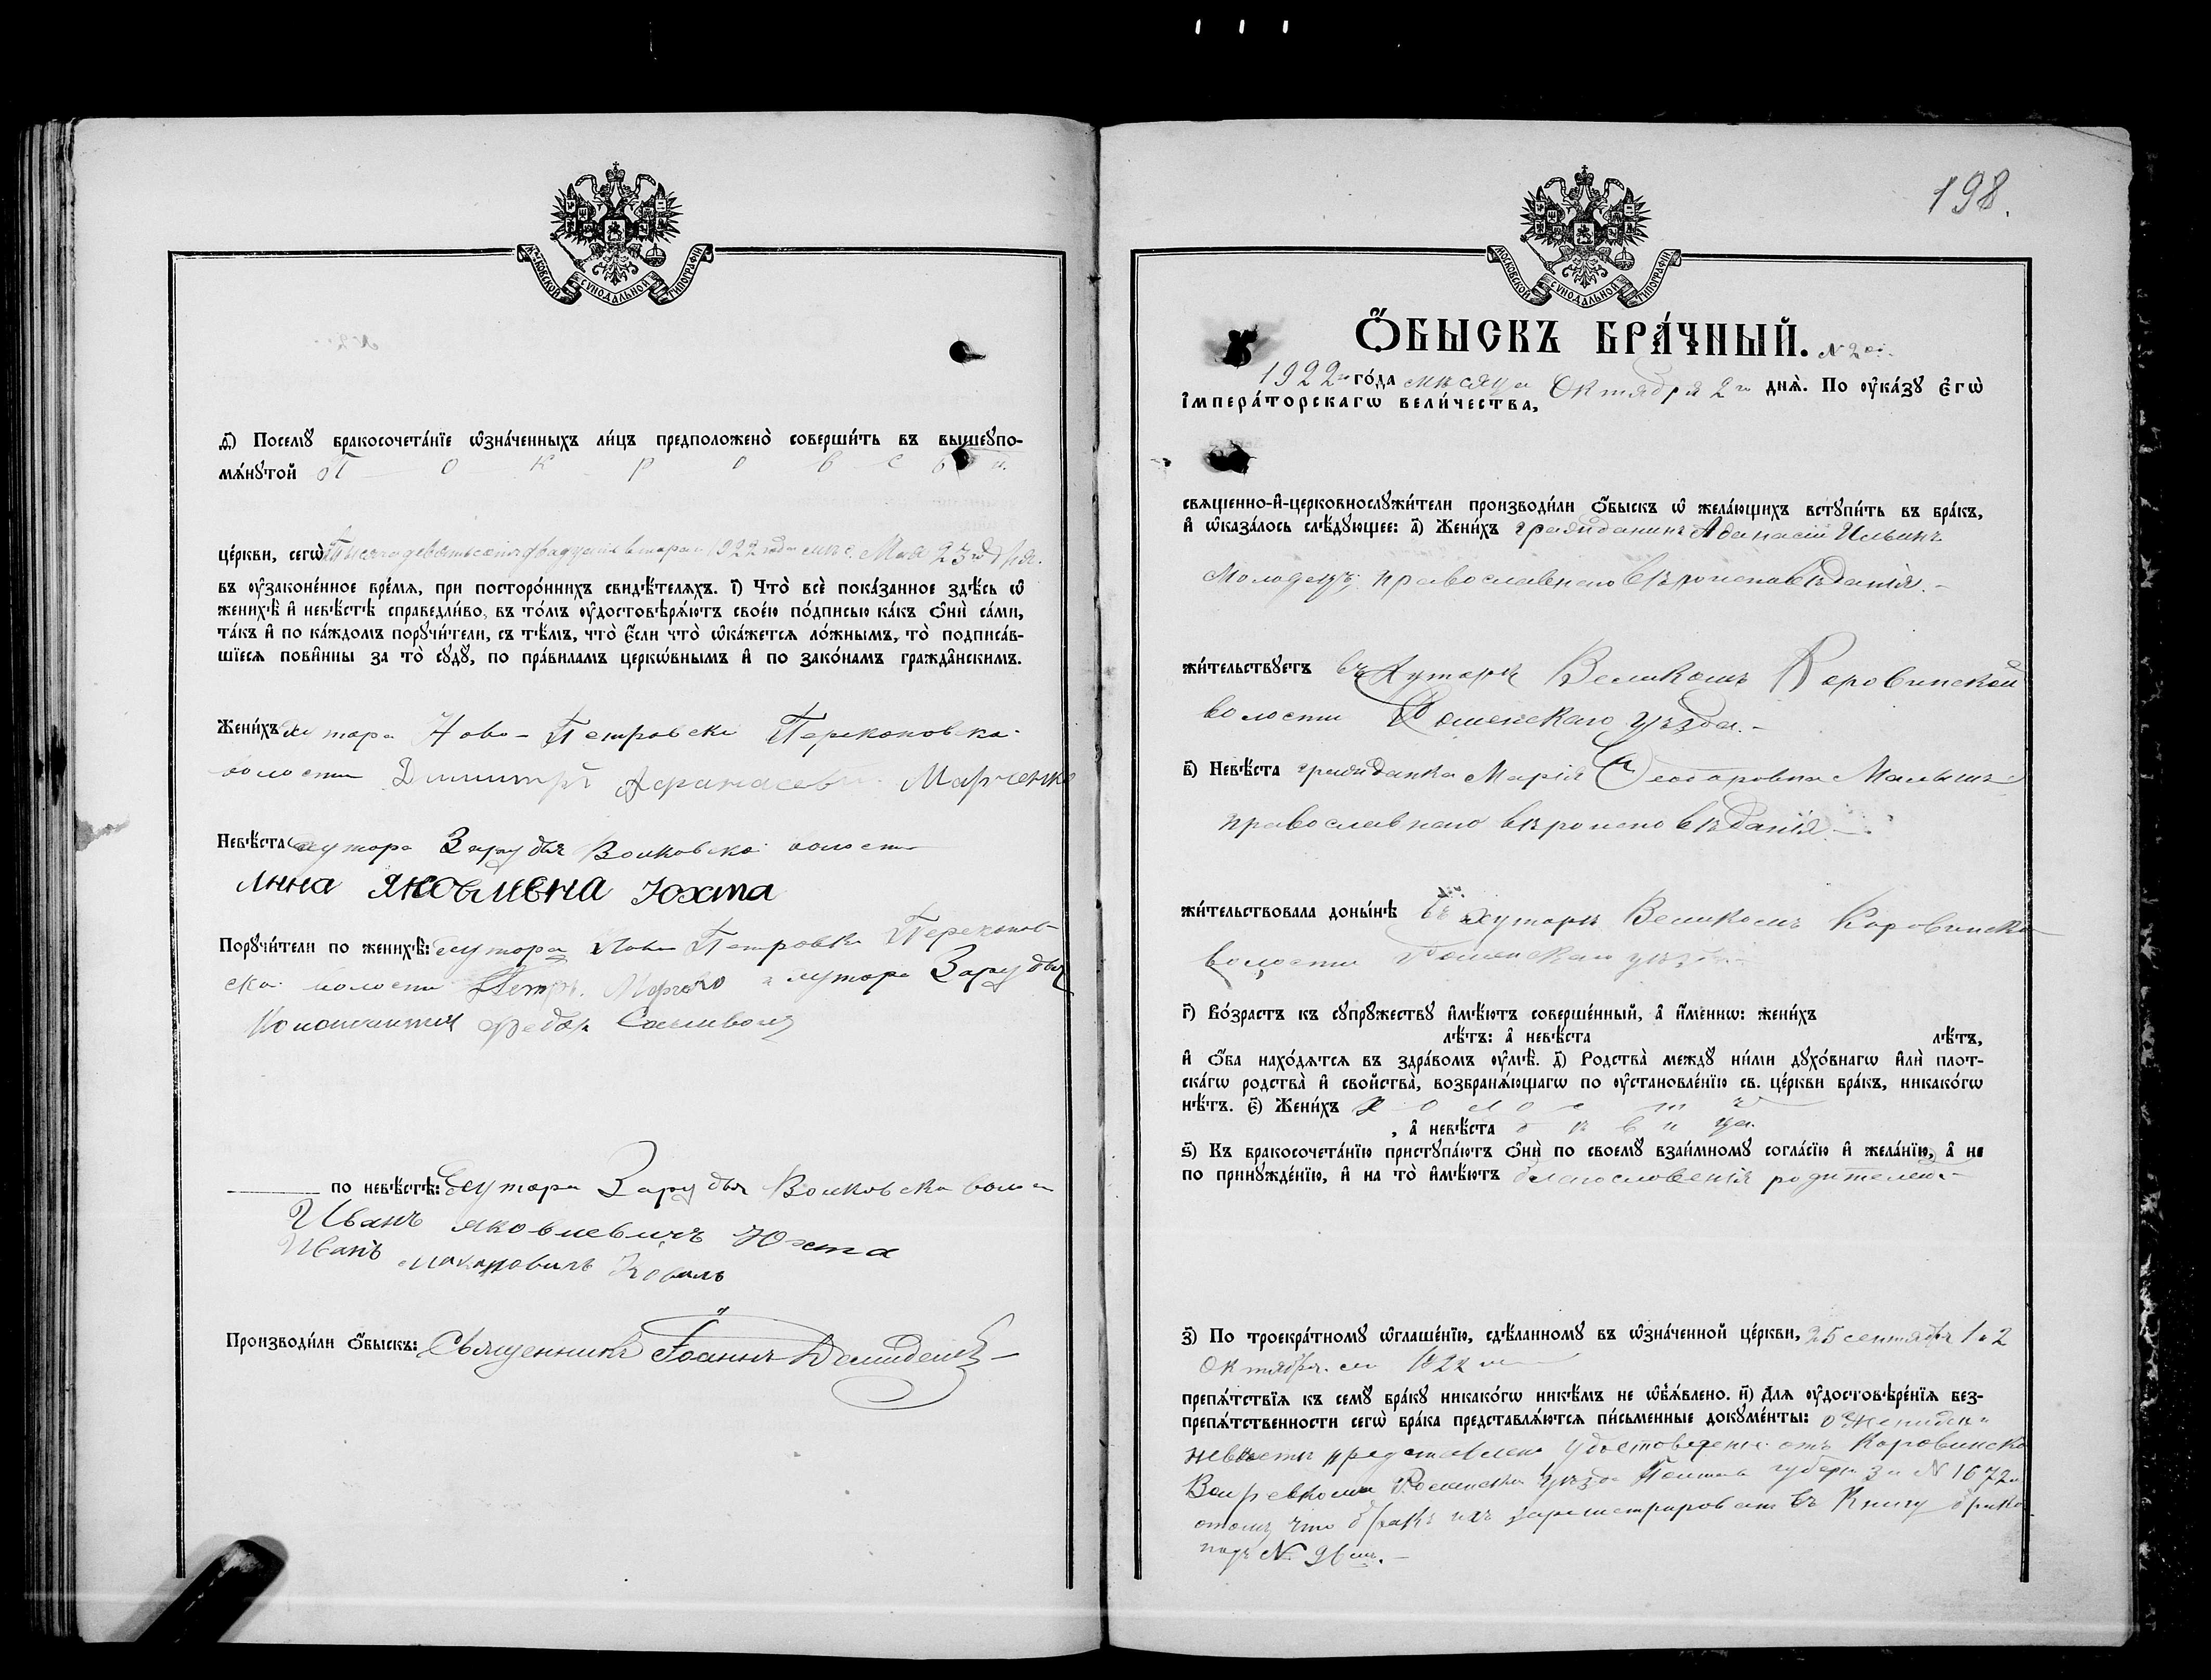 МОСКОВСКОЙ СѴНОДАЛЬНОЙ ТИПОГРАФІИ
ѳ҃) Посемꙋ̀ бракосочета́нїе ѡ҆зна́ченныхъ ли́цъ предположено̀ соверши́ть въ вышеꙋпо-
мѧ́нꙋтой Покровской
це́ркви, сегѡ̀ Тысяча девятьсотъ двадцать второго 1922 года мѣс. Мая 23го дня.
въ ᲂу҆зако́ненное вре́мѧ, при посторо́ннихъ свидѣ́телѧхъ. і҃) Что̀ всѐ пока́занное здѣ́сь ѡ҆
женихѣ̀ и҆ невѣ́стѣ справедли́во, въ то́мъ ᲂу҆достовѣрѧ́ютъ свое́ю по́дписью ка́къ ѻ҆нѝ са́ми,
та́къ и҆ по ка́ждомъ порꙋчи́тели, съ тѣ́мъ, что̀ є҆́сли что̀ ѡ҆ка́жетсѧ ло́жнымъ, то̀ подписа́в-
шїесѧ пови́нны за то̀ сꙋдꙋ̀, по пра́виламъ церко́внымъ и҆ по зако́намъ гражда́нскимъ.
Жени́хъ хутора Ново-Петровски Перекоповско
волости Димитрій Афанасеви Марченко
Невѣ́ста хутора Зарудья Волковско волости
Анна Яковлевна Юхта
Порꙋчи́тели по женихѣ̀: хутора Ново Петровки Перекопов-
ско волости Петръ хутора Зарудья
Федоръ
по невѣ́стѣ: хутора Зарудья Волковско волости
Иванъ Яковлевичъ Юхта
Иванъ Макаровичъ Коваль
Производи́ли ѻ҆́быскъ: Священникъ Іоаннъ
198.
МОСКОВСКОЙ СѴНОДАЛЬНОЙ ТИПОГРАФІИ
Ѻ҆́БЫСКЪ БРА́ЧНЫЙ. N 2ой.
1922го го́да мѣсяца Октября 2го днѧ̀. По ᲂу҆ка́зꙋ Є҆гѡ̀
І҆мпера́торскагѡ вели́чества,
свѧщенно-и҆-церковнослꙋжи́тели производи́ли ѻ҆́быскъ ѡ҆ жела́ющихъ встꙋпи́ть въ бра́къ,
и҆ ѡ҆каза́лось слѣ́дꙋющее: а҃) Жени́хъ гражданинъ Афанасій Ильинъ
Молодецъ, православнаго вѣроисповѣданія.-
жи́тельствꙋетъ въ Хуторѣ Великомъ Коровинской
волости Роменскаго уѣзда.-
в҃) Невѣ́ста гражданка Марія Феодоровна Малышъ
православнаго вѣроисповѣданія.-
жи́тельствовала доны́нѣ въ хуторѣ Великомъ Коровинско
волости Роменскаго уѣзда
г҃) Во́зрастъ къ сꙋпрꙋ́жествꙋ и҆мѣ́ютъ соверше́нный, а҆ и҆́меннѡ: жени́хъ
лѣ́тъ: а҆ невѣ́ста лѣ́тъ,
и҆ ѻ҆́ба нахо́дѧтсѧ въ здра́вомъ ᲂу҆мѣ̀. д҃) Родства̀ междꙋ̀ ни́ми дꙋхо́внагѡ и҆лѝ плот-
ска́гѡ родства̀ и҆ свойства̀, возбранѧ́ющагѡ по ᲂу҆становле́нїю св. це́ркви бра́къ, никако́гѡ
нѣ́тъ. є҃) Жени́хъ холостъ
, а҆ невѣ́ста дѣвица.
ѕ҃) Къ бракосочета́нїю пристꙋпа́ютъ ѻ҆нѝ по своемꙋ̀ взаи́мномꙋ согла́сїю и҆ жела́нїю, а҆ не
по принꙋжде́нїю, и҆ на то̀ и҆мѣ́ютъ благословенія родителей.-
з҃) По троекра́тномꙋ ѡ҆глаше́нїю, сдѣ́ланномꙋ въ ѡ҆зна́ченной це́ркви, 25 сентября 1 и 2
Октября 1922
препѧ́тствїѧ къ семꙋ̀ бра́кꙋ никако́гѡ никѣ́мъ не ѡ҆б̾ѧ́влено. и҃) Длѧ ᲂу҆достовѣре́нїѧ без-
препѧ́тственности сегѡ̀ бра́ка представлѧ́ютсѧ пи́сьменные докꙋме́нты: о женихѣ и
невѣстѣ представлено удостоверение отъ Коровинско
Волревкома Роменско уѣзда Полтав губерн за N 1672м
отомъ что бракъ ихъ зарегистрированъ въ Книгу брако
подъ N 96мъ.-